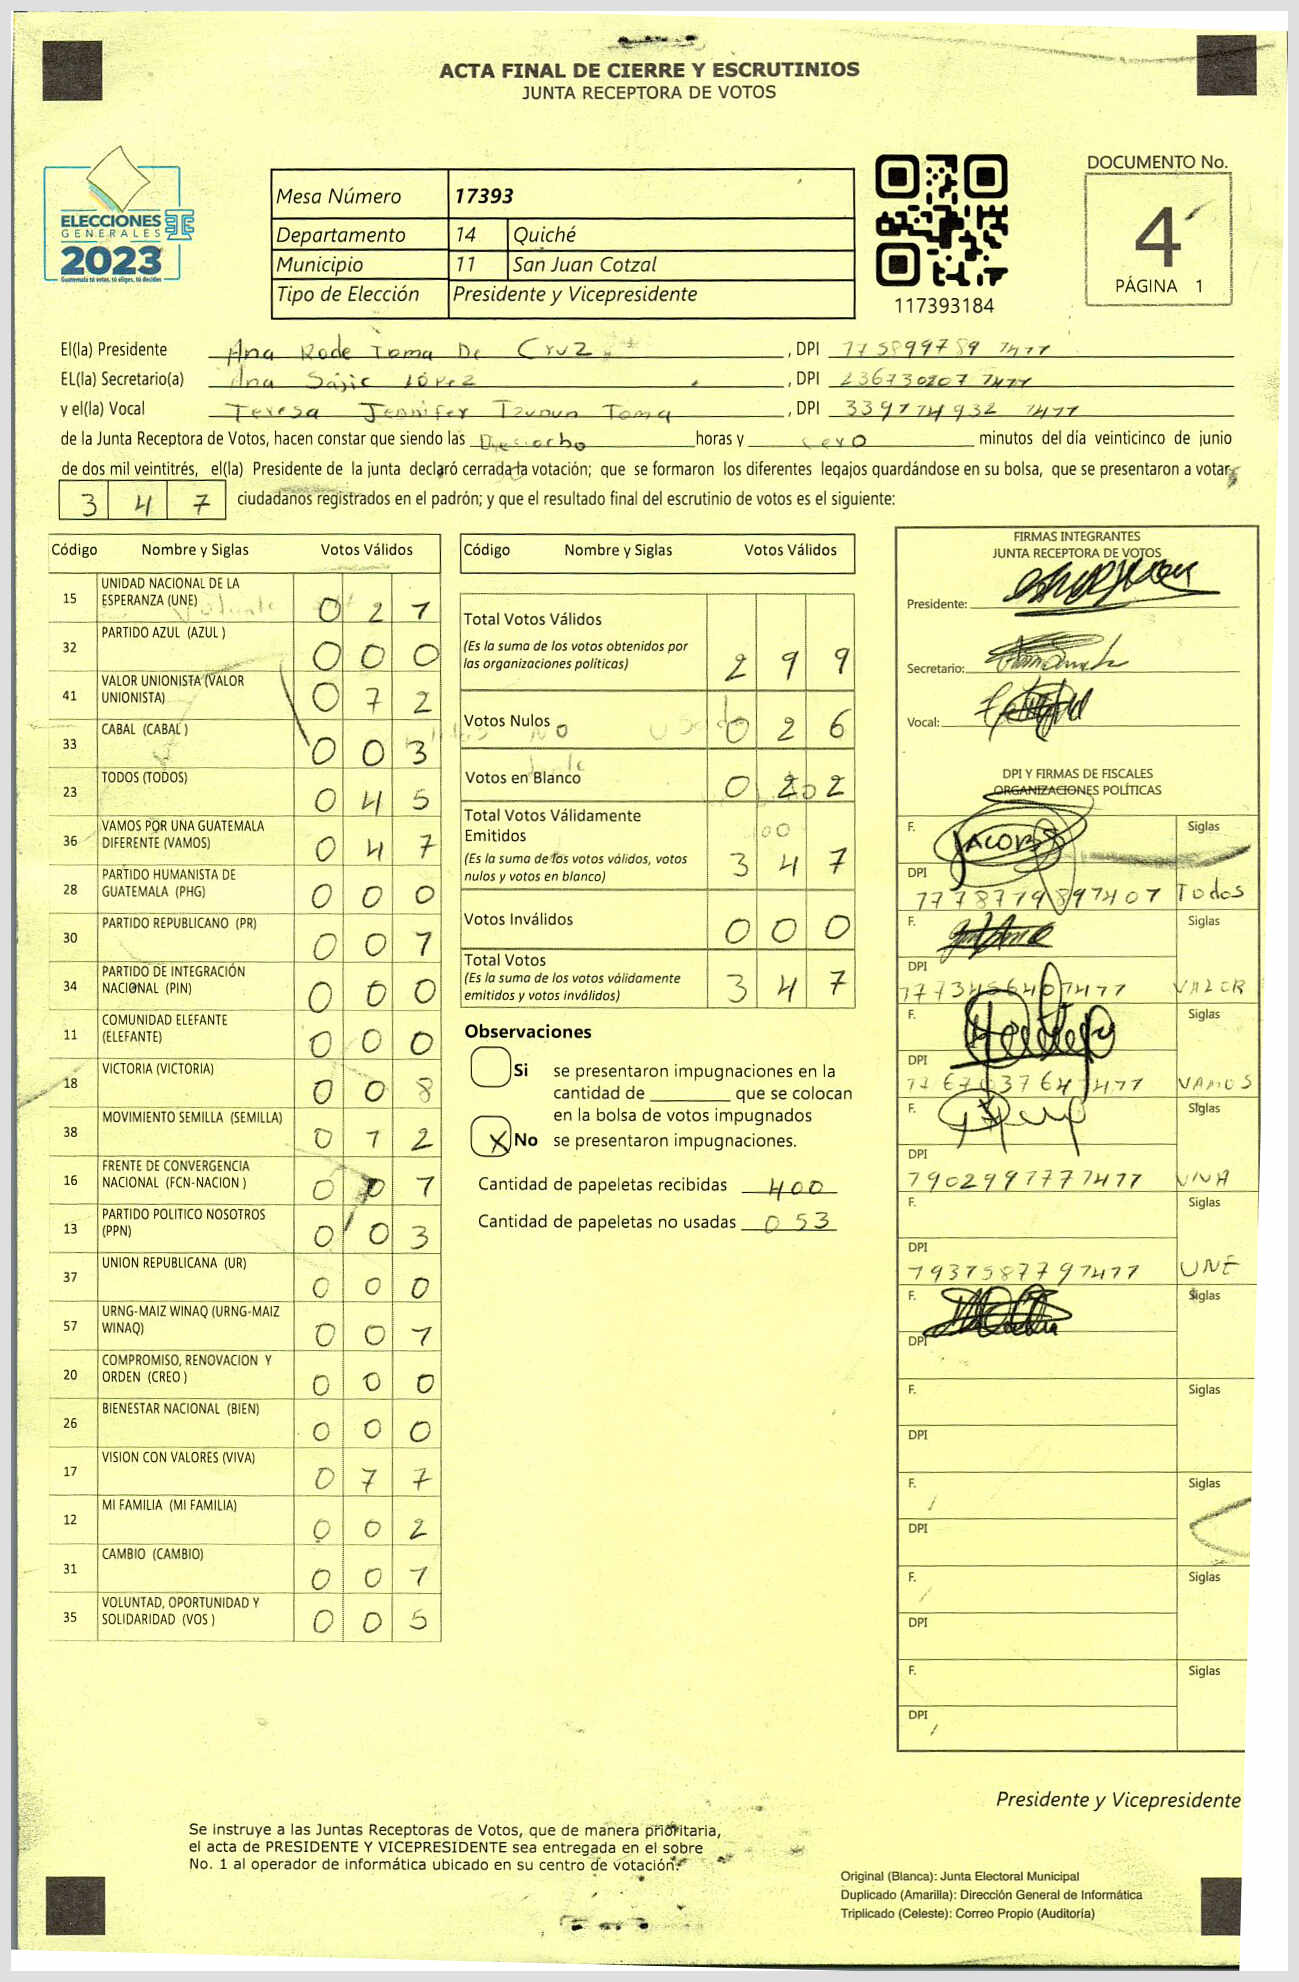 ACTA FINAL DE CIERRE Y ESCRUTINIOS
JUNTA RECEPTORA DE VOTOS
ELECCIONES
GENERALES
2023
Guatemala tú votas, tú eliges, tú decides
Mesa Número 17393
Departamento 14 Quiché
Municipio 11 San Juan Cotzal
Tipo de Elección Presidente y Vicepresidente
117393184
DOCUMENTO No.
4
PÁGINA 1
El(la) Presidente Ana Rode Toma De Cruz , DPI 1411
EL(la) Secretario(a) Ana Sajic López , DPI 236730207 1411
y el(la) Vocal Teresa Jennifer Tzunun Toma , DPI 1411
de la Junta Receptora de Votos, hacen constar que siendo las Dieciocho horas y cero minutos del día veinticinco de junio
de dos mil veintitrés, el(la) Presidente de la junta declaró cerrada la votación; que se formaron los diferentes legajos guardándose en su bolsa, que se presentaron a votar
3 4 7 ciudadanos registrados en el padrón; y que el resultado final del escrutinio de votos es el siguiente:
Código Nombre y Siglas Votos Válidos
15 UNIDAD NACIONAL DE LA ESPERANZA (UNE) 0 2 1
32 PARTIDO AZUL (AZUL ) 0 0 0
41 VALOR UNIONISTA (VALOR UNIONISTA) 0 7 2
33 CABAL (CABAL ) 0 0 3
23 TODOS (TODOS) 0 4 5
36 VAMOS POR UNA GUATEMALA DIFERENTE (VAMOS) 0 4 7
28 PARTIDO HUMANISTA DE GUATEMALA (PHG) 0 0 0
30 PARTIDO REPUBLICANO (PR) 0 0 1
34 PARTIDO DE INTEGRACIÓN NACIONAL (PIN) 0 0 0
11 COMUNIDAD ELEFANTE (ELEFANTE) 0 0 0
18 VICTORIA (VICTORIA) 0 0 8
38 MOVIMIENTO SEMILLA (SEMILLA) 0 1 2
16 FRENTE DE CONVERGENCIA NACIONAL (FCN-NACION ) 0 0 1
13 PARTIDO POLITICO NOSOTROS (PPN) 0 0 3
37 UNION REPUBLICANA (UR) 0 0 0
57 URNG-MAIZ WINAQ (URNG-MAIZ WINAQ) 0 0 1
20 COMPROMISO, RENOVACION Y ORDEN (CREO ) 0 0 0
26 BIENESTAR NACIONAL (BIEN) 0 0 0
17 VISION CON VALORES (VIVA) 0 7 7
12 MI FAMILIA (MI FAMILIA) 0 0 2
31 CAMBIO (CAMBIO) 0 0 1
35 VOLUNTAD, OPORTUNIDAD Y SOLIDARIDAD (VOS ) 0 0 5
Código Nombre y Siglas Votos Válidos
Total Votos Válidos
(Es la suma de los votos obtenidos por
las organizaciones políticas) 2 9 9
Votos Nulos 0 2 6
Votos en Blanco 0 2 2
Total Votos Válidamente
Emitidos
(Es la suma de los votos válidos, votos
nulos y votos en blanco) 3 4 7
Votos Inválidos 0 0 0
Total Votos
(Es la suma de los votos válidamente
emitidos y votos inválidos) 3 4 7
Observaciones
Si se presentaron impugnaciones en la
cantidad de ________ que se colocan
en la bolsa de votos impugnados
X No se presentaron impugnaciones.
Cantidad de papeletas recibidas 400
Cantidad de papeletas no usadas 053
FIRMAS INTEGRANTES
JUNTA RECEPTORA DE VOTOS
Presidente:
Secretario:
Vocal:
DPI Y FIRMAS DE FISCALES
ORGANIZACIONES POLÍTICAS
F. JACOBS Siglas
DPI Todos
F. Siglas
DPI VALOR
F. Siglas
DPI VAMOS
F. Siglas
DPI VIVA
F. Siglas
DPI UNE
F. Siglas
DPI
F. Siglas
DPI
F. Siglas
DPI
F. Siglas
DPI
F. Siglas
DPI
Presidente y Vicepresidente
Se instruye a las Juntas Receptoras de Votos, que de manera prioritaria,
el acta de PRESIDENTE Y VICEPRESIDENTE sea entregada en el sobre
No. 1 al operador de informática ubicado en su centro de votación.
Original (Blanca): Junta Electoral Municipal
Duplicado (Amarilla): Dirección General de Informática
Triplicado (Celeste): Correo Propio (Auditoría)